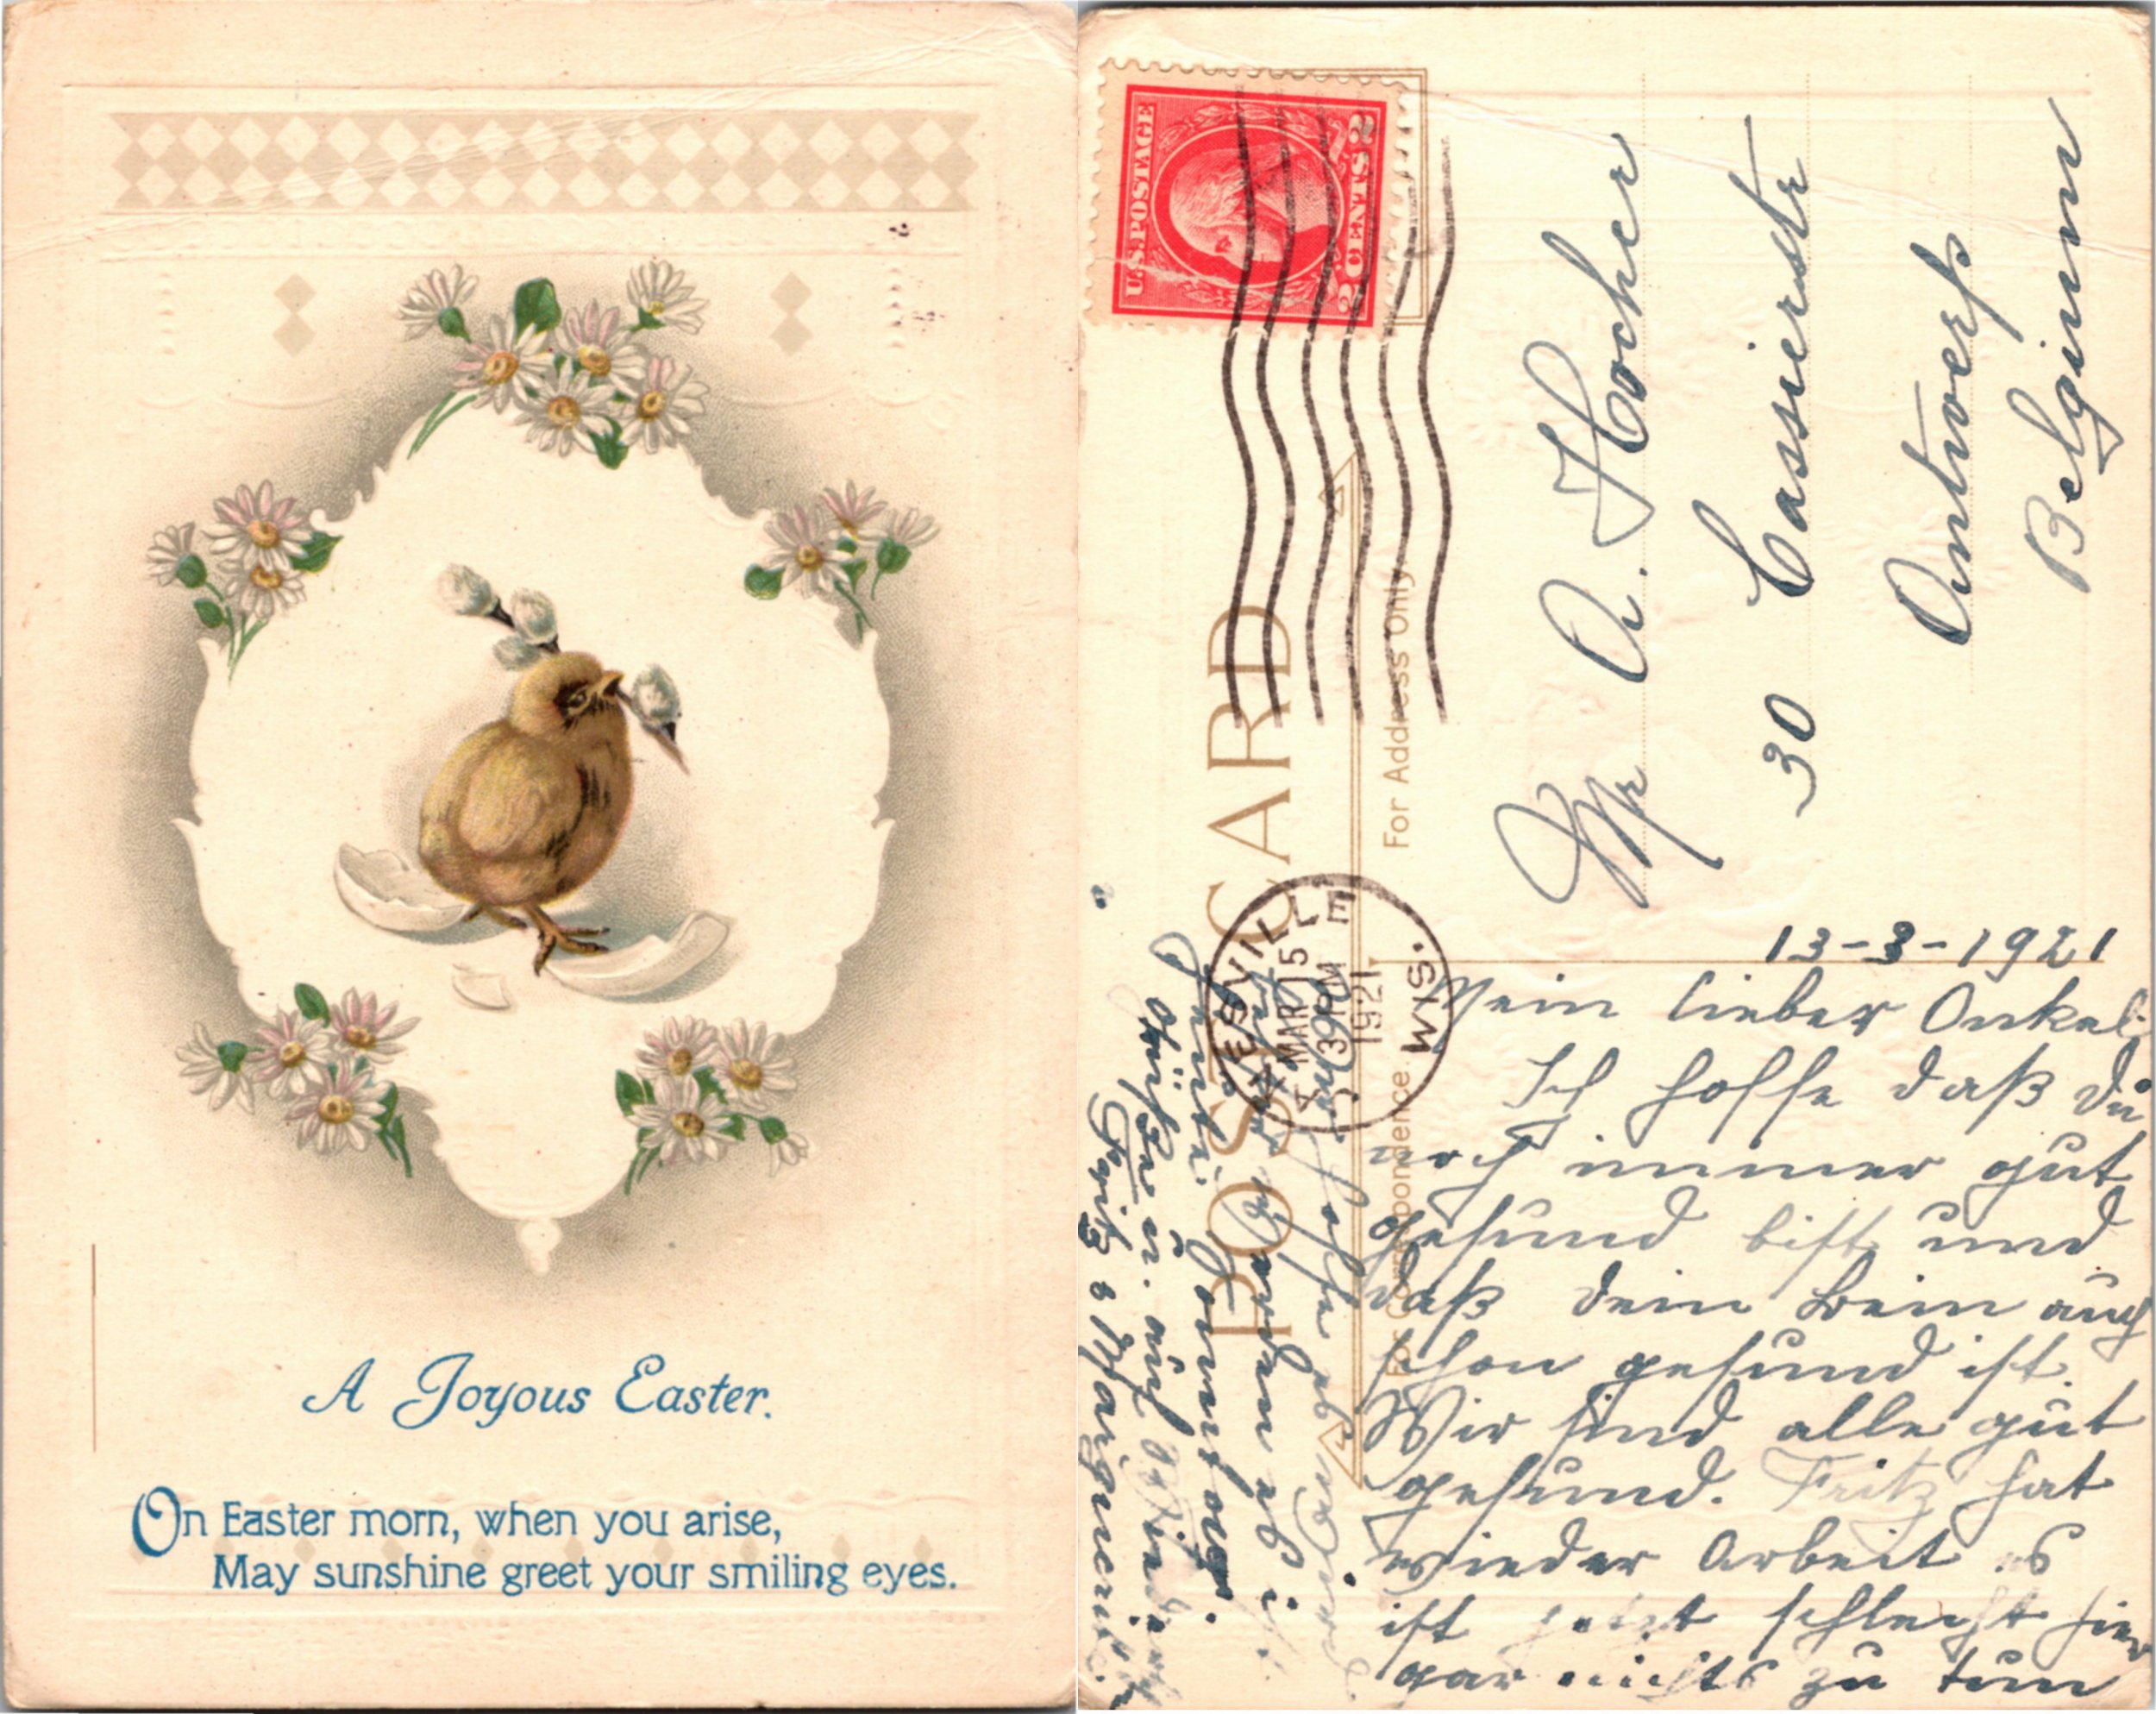 A Joyous Easter.
On Easter morn, when you arise,
May sunshine greet your smiling eyes.
U.S. POSTAGE
2 CENTS 2
POST CARD
For Address Only.
For Correspondence.
MAR 15
3 PM
1921
WIS.
Mr A. Hocher
30 Cassierstr
Antwerp
Belgium
13-3-1921
Mein lieber Onkel.
Ich hoffe daß Du
noch immer gut
gesund bist und
daß dein Bein auch
schon gesund ist.
Wir sind alle gut
gesund. Fritz hat
wieder Arbeit es
ist jetzt schlecht hier
gar nichts zu tun
Grüße u. auf
Fritz & Margueritte